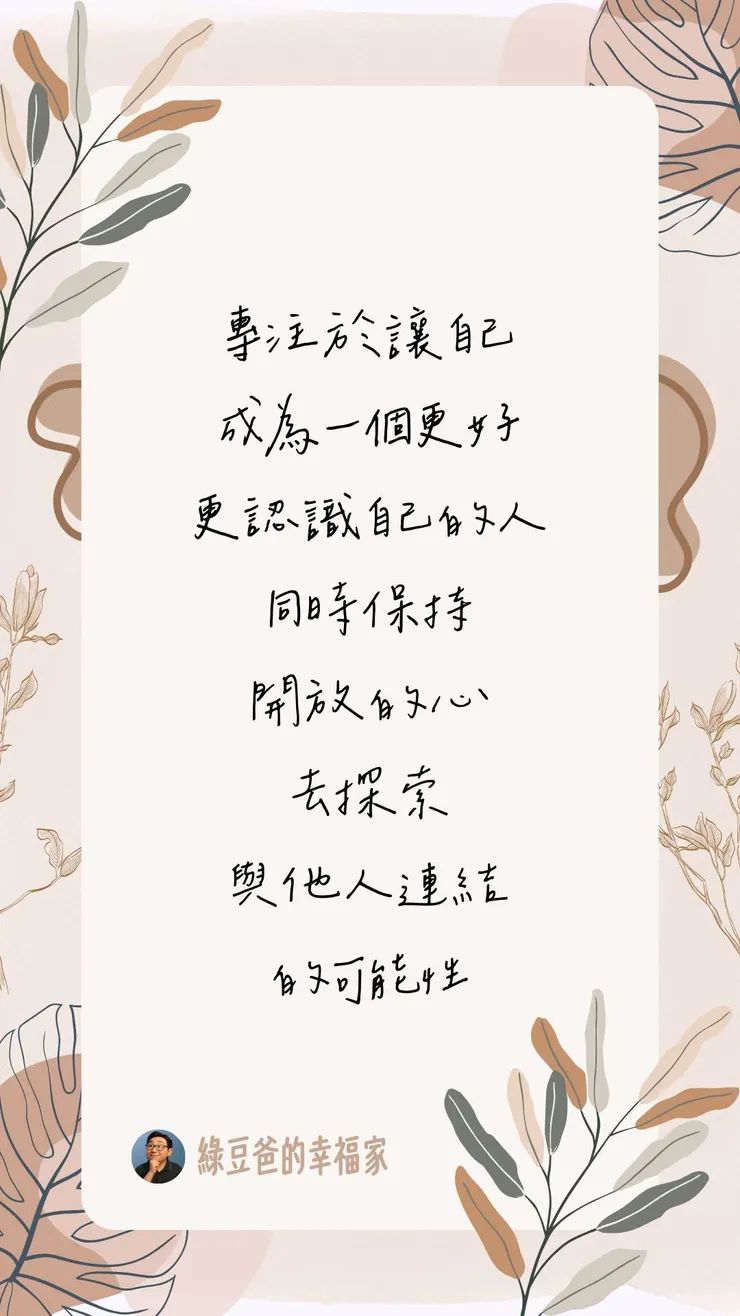 專注於讓自己
成為一個更好
更認識自己的人
同時保持
開放的心
去探索
與他人連結
的可能性
綠豆爸的幸福家